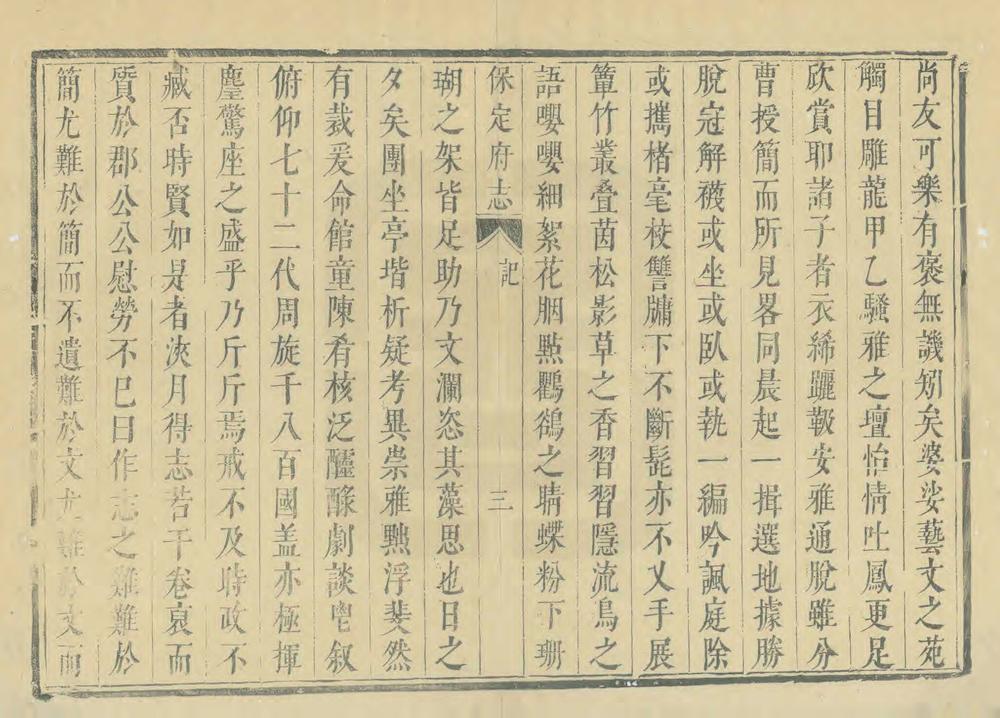 尚友可樂有褒無譏矧矣婆娑藝文之苑
觸目雕龍甲乙騷雅之壇怡情吐鳳更足
欣賞耶諸子者衣絺躧靸安雅通脫雖分
曹授簡而所見畧同晨起一揖選地據勝
脫冠解襪或坐或臥或執一編吟諷庭除
或攜楮毫校讐牗下不斷髭亦不乂手展
簞竹叢疊茵松影草之香習習隱流鳥之
語嚶嚶細絮花胭㸃鸜鵒之睛蝶粉下珊
保定府志 記 三
瑚之架皆足助乃文瀾恣其藻思也日之
夕矣團坐亭堦析疑考異崇雅黜浮斐然
有裁爰命館童陳肴核泛醽醁劇談皀叙
俯仰七十二代周旋千八百國盖亦極揮
麈驚座之盛乎乃斤斤焉戒不及時政不
臧否時賢如是者浹月得志若干卷裒而
質於郡公公慰勞不巳曰作志之難難於
簡尤難於簡而不遺難於文尤難於文而